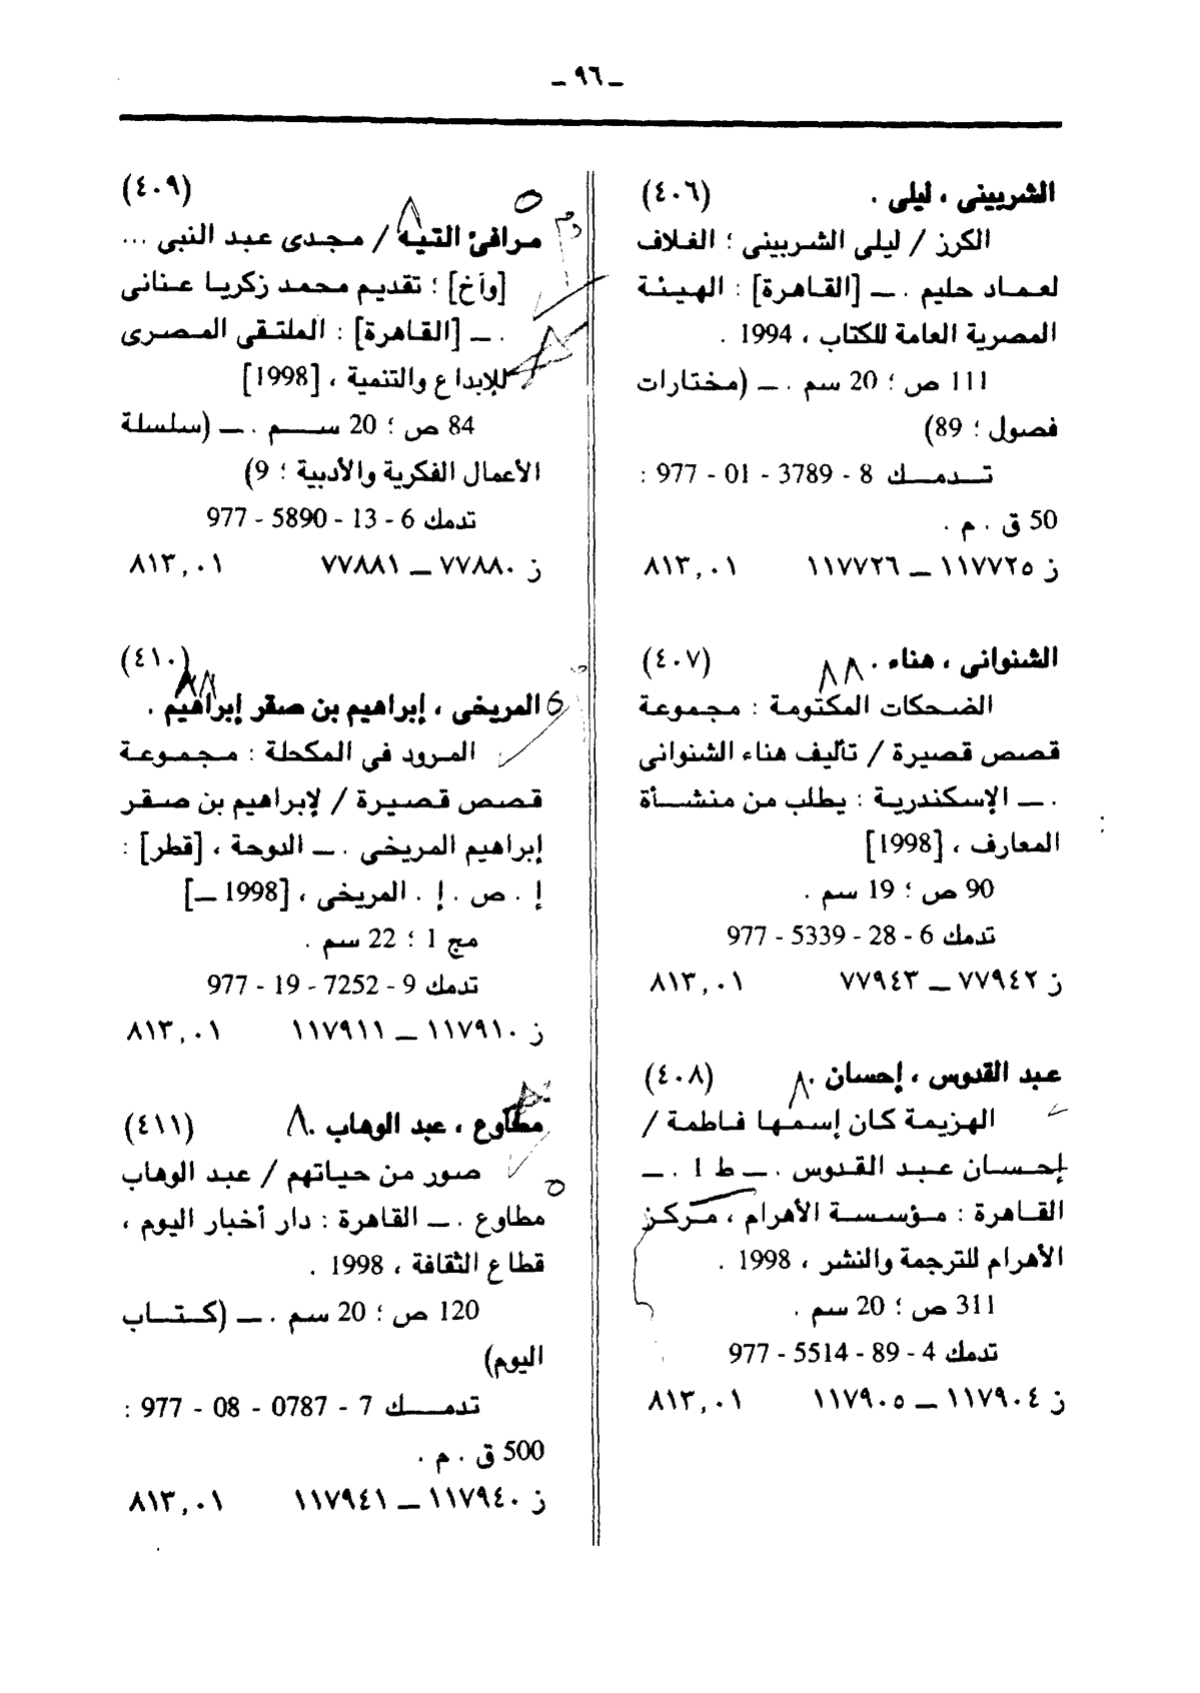 ـ ٩٦ ـ
الشربينى ، ليلى . (٤٠٦)
الكرز / ليلى الشربينى ؛ الغلاف
لعماد حليم . ــ [القاهرة] : الهيئة
المصرية العامة للكتاب ، 1994 .
111 ص ؛ 20 سم . ــ (مختارات
فصول ؛ 89)
تدمك 8 - 3789 - 01 - 977 :
50 ق . م .
ز ١١٧٧٢٥ ــ ١١٧٧٢٦ ٨١٣,٠١
الشنوانى ، هناء . (٤٠٧)
الضحكات المكتومة : مجموعة
قصص قصيرة / تأليف هناء الشنوانى
. ــ الإسكندرية : يطلب من منشأة
المعارف ، [1998]
90 ص ؛ 19 سم .
تدمك 6 - 28 - 5339 - 977
ز ٧٧٩٤٢ ــ ٧٧٩٤٣ ٨١٣,٠١
عبد القدوس ، إحسان . (٤٠٨)
الهزيمة كان إسمها فاطمة /
إحسان عبد القدوس . ــ ط 1 . ــ
القاهرة : مؤسسة الأهرام ، مركز
الأهرام للترجمة والنشر ، 1998 .
311 ص ؛ 20 سم .
تدمك 4 - 89 - 5514 - 977
ز ١١٧٩٠٤ ــ ١١٧٩٠٥ ٨١٣,٠١
(٤٠٩)
مرافئ التيه / مجدى عبد النبى ...
[وآخ] ؛ تقديم محمد زكريا عنانى
. ــ [القاهرة] : الملتقى المصرى
للإبداع والتنمية ، [1998]
84 ص ؛ 20 سم . ــ (سلسلة
الأعمال الفكرية والأدبية ؛ 9)
تدمك 6 - 13 - 5890 - 977
ز ٧٧٨٨٠ ــ ٧٧٨٨١ ٨١٣,٠١
(٤١٠)
المريخى ، إبراهيم بن صقر إبراهيم .
المرود فى المكحلة : مجموعة
قصص قصيرة / لإبراهيم بن صقر
إبراهيم المريخى . ــ الدوحة ، [قطر] :
إ . ص . إ . المريخى ، [1998 ــ]
مج 1 ؛ 22 سم .
تدمك 9 - 7252 - 19 - 977
ز ١١٧٩١٠ ــ ١١٧٩١١ ٨١٣,٠١
مطاوع ، عبد الوهاب . (٤١١)
صور من حياتهم / عبد الوهاب
مطاوع . ــ القاهرة : دار أخبار اليوم ،
قطاع الثقافة ، 1998 .
120 ص ؛ 20 سم . ــ (كتاب
اليوم)
تدمك 7 - 0787 - 08 - 977 :
500 ق . م .
ز ١١٧٩٤٠ ــ ١١٧٩٤١ ٨١٣,٠١